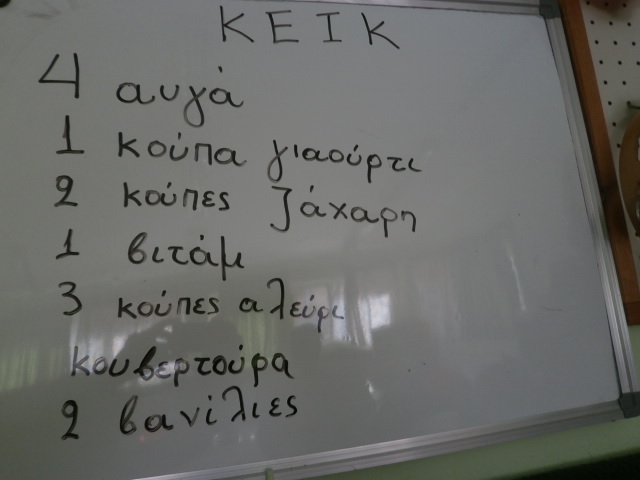 ΚΕΙΚ
4 αυγά
1 κούπα γιαούρτι
2 κούπες ζάχαρη
1 βιτάμ
3 κούπες αλεύρι
κουβερτούρα
2 βανίλιες